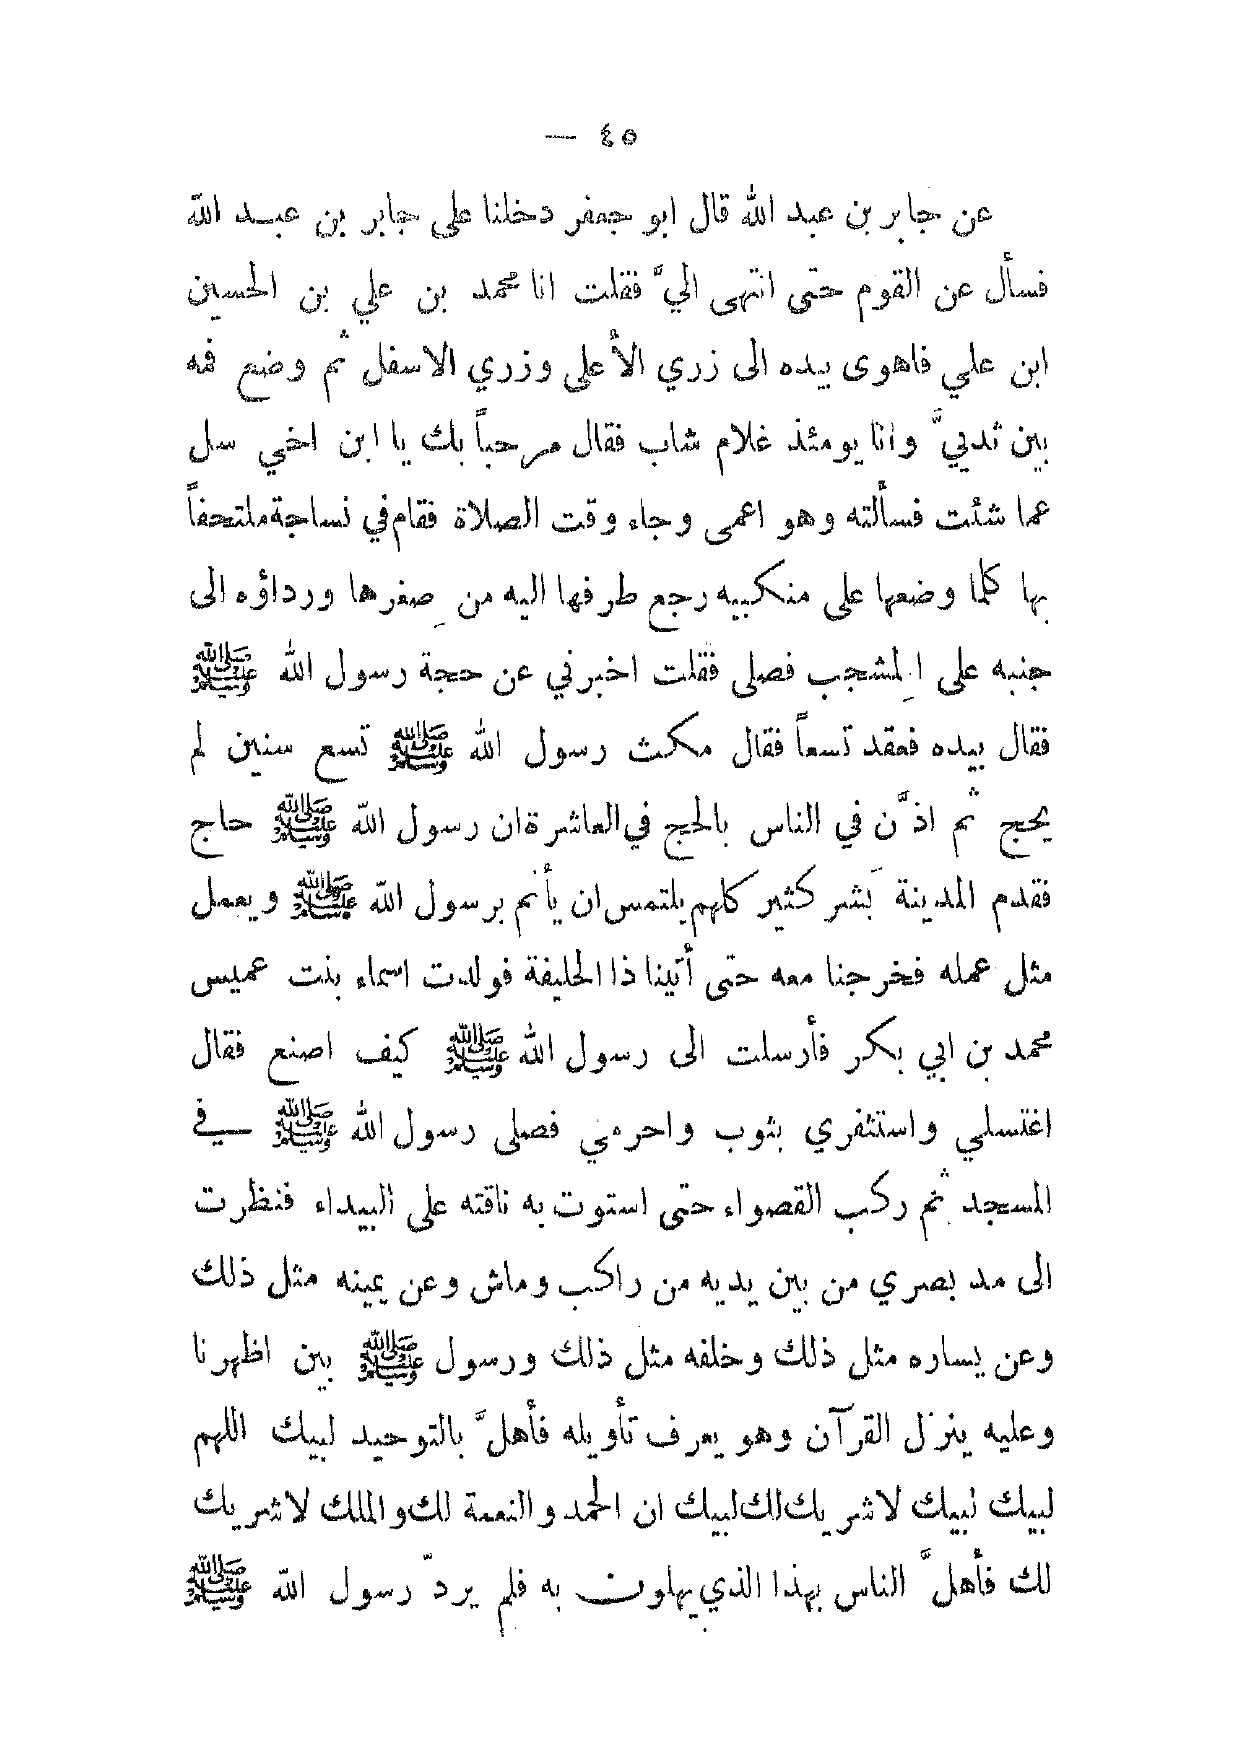 ٤٥ —
عن جابر بن عبد الله قال ابو جعفر دخلنا على جابر بن عبد الله
فسأل عن القوم حتى انتهى اليَّ فقلت انا محمد بن علي بن الحسين
ابن علي فاهوى بيده الى زري الأعلى وزري الاسفل ثم وضع فمه
بين ثدييَّ وانا يومئذ غلام شاب فقال مرحباً بك يا ابن اخي سل
عما شئت فسألته وهو اعمى وجاء وقت الصلاة فقام في نساجة ملتحفاً
بها كلما وضعها على منكبيه رجع طرفها اليه من صغرها ورداؤه الى
جنبه على المِشجب فصلى فقلت اخبرني عن حجة رسول الله ﷺ
فقال بيده فعقد تسعاً فقال مكث رسول الله ﷺ تسع سنين لم
يحج ثم اذَّن في الناس بالحج في العاشرة ان رسول الله ﷺ حاج
فقدم المدينة بَشر كثير كلهم يلتمس ان يأتم برسول الله ﷺ ويعمل
مثل عمله فخرجنا معه حتى أتينا ذا الحليفة فولدت اسماء بنت عميس
محمد بن ابي بكر فأرسلت الى رسول الله ﷺ كيف اصنع فقال
اغتسلي واستثفري بثوب واحرمي فصلى رسول الله ﷺ في
المسجد ثم ركب القصواء حتى استوت به ناقته على البيداء فنظرت
الى مد بصري من بين يديه من راكب وماش وعن يمينه مثل ذلك
وعن يساره مثل ذلك وخلفه مثل ذلك ورسول ﷺ بين اظهرنا
وعليه ينزل القرآن وهو يعرف تأويله فأهلَّ بالتوحيد لبيك اللهم
لبيك لبيك لاشريك لك لبيك ان الحمد والنعمة لك والملك لاشريك
لك فأهلَّ الناس بهذا الذي يهلون به فلم يردّ رسول الله ﷺ